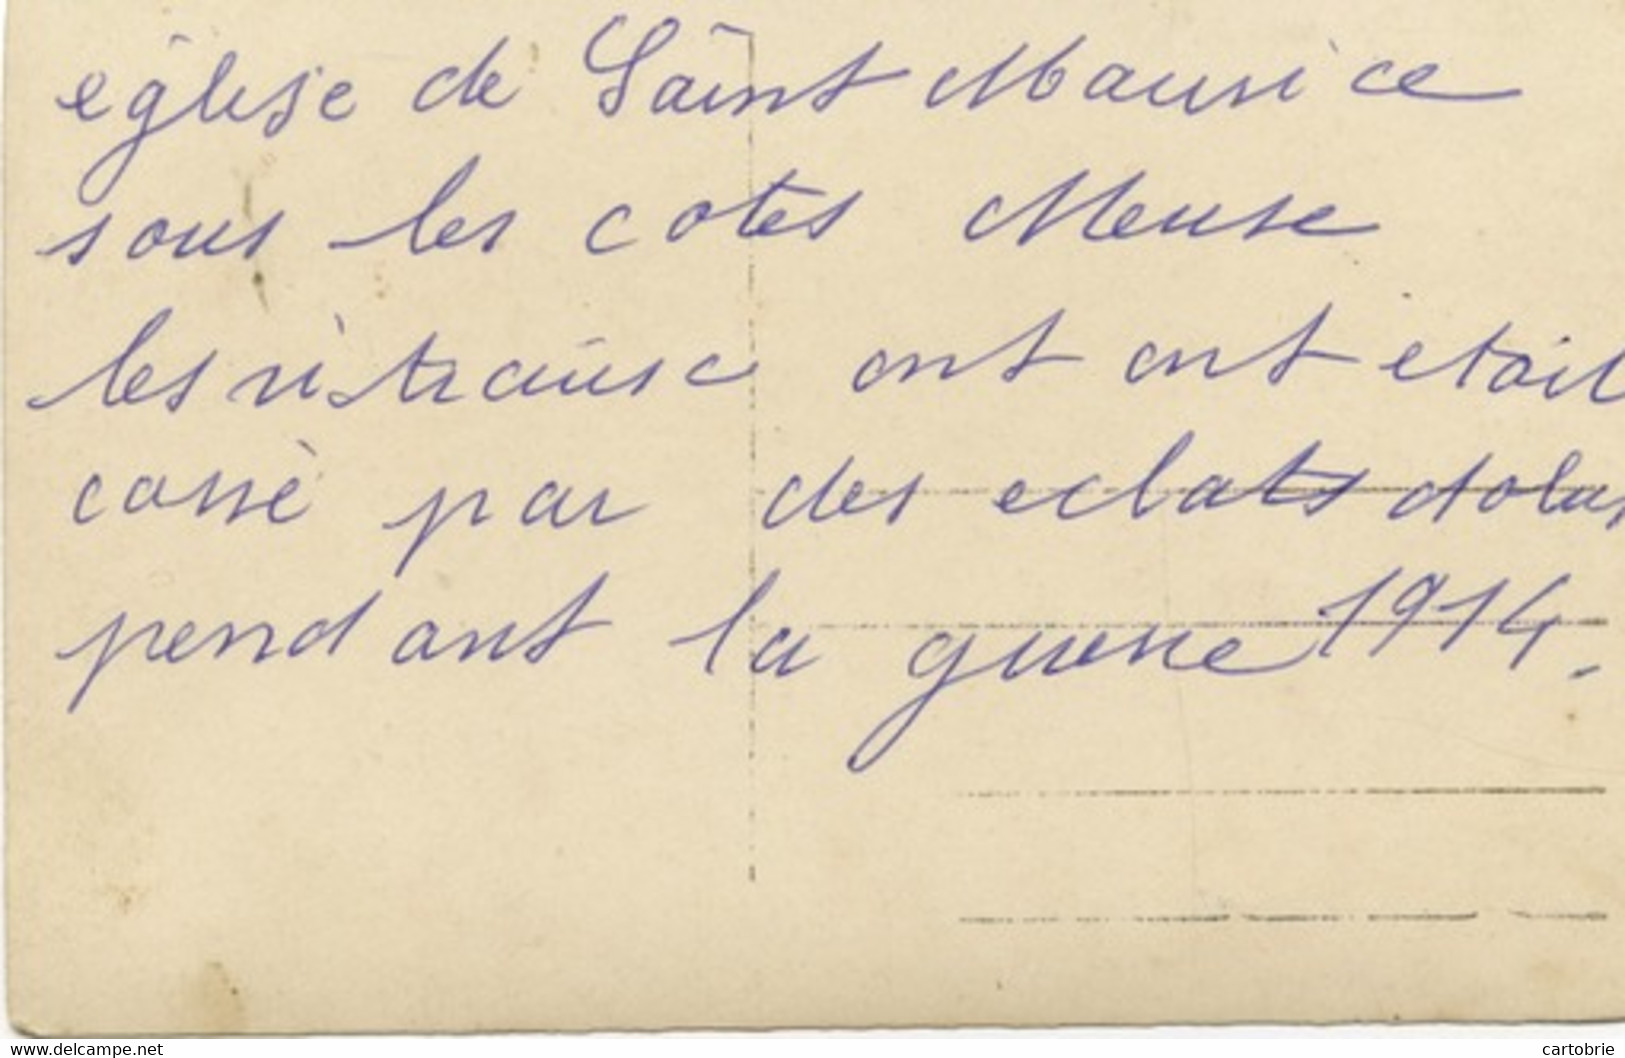 église de Saint Maurice
sous les cotes Meuse
les vitrause ont ont etait
cassè par des eclats dobus
pendant la guerre 1914.
www.delcampe.net
cartobrie